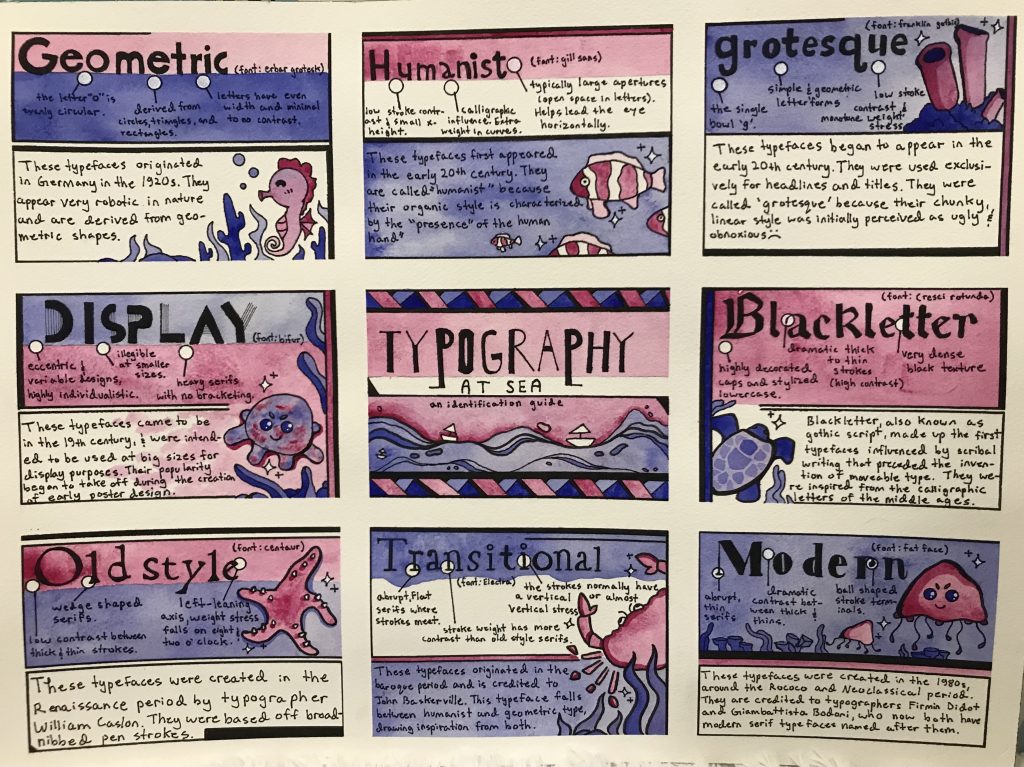 Geometric (font: erbar grotesk)
the letter "o" is
evenly circular.
derived from
circles, triangles, and
rectangles.
letters have even
width and minimal
to no contrast.
These typefaces originated
in Germany in the 1920s. They
appear very robotic in nature
and are derived from geo-
metric shapes.
Humanist (font: gill sans)
low stroke contr-
ast & small x-
height.
calligraphic
influence. Extra
weight in curves.
typically large apertures
(open space in letters).
Helps lead the eye
horizontally.
These typefaces first appeared
in the early 20th century. They
are called "humanist" because
their organic style is characterized
by the "presence" of the human
hand"
grotesque (font: franklin gothic)
the single
bowl 'g'.
simple & geometric
letterforms
low stroke
contrast &
monotone weight
stress
These typefaces began to appear in the
early 20th century. They were used exclusi-
vely for headlines and titles. They were
called 'grotesque' because their chunky,
linear style was initially perceived as ugly &
obnoxious
DISPLAY (font: bifur)
eccentric &
variable designs,
highly individualistic.
illegible
at smaller
sizes.
heavy serifs
with no bracketing.
These typefaces came to be
in the 19th century, & were intend-
ed to be used at big sizes for
display purposes. Their popularity
began to take off during the creation
of early poster design.
TYPOGRAPHY
AT SEA
an identification guide
Blackletter (font: (resci rotunda)
highly decorated
caps and stylized
lowercase.
dramatic thick
to thin
strokes
(high contrast)
very dense
black texture
Blackletter, also known as
gothic script, made up the first
typefaces influenced by scribal
writing that preceded the inven-
tion of moveable type. They we-
re inspired from the calligraphic
letters of the middle ages.
Old style (font: centaur)
low contrast between
thick & thin strokes.
wedge shaped
serifs.
left-leaning
axis, weight stress
falls on eight &
two o'clock.
These typefaces were created in the
Renaissance period by typographer
William Caslon. They were based off broad-
nibbed pen strokes.
Transitional
(font: Electra)
abrupt, flat
serifs where
strokes meet.
stroke weight has more
contrast than old style serifs.
the strokes normally have
a vertical or almost
vertical stress
These typefaces originated in the
baroque period and is credited to
John Baskerville. This typeface falls
between humanist and geometric type,
drawing inspiration from both.
Modern (font: fat face)
abrupt,
thin
serifs
dramatic
contrast bet-
ween thick &
thins.
ball shaped
stroke term-
inals.
These typefaces were created in the 1980s,
around the Rococo and Neoclassical period.
They are credited to typographers Firmin Didot
and Giambattista Bodoni, who now both have
modern serif typefaces named after them.